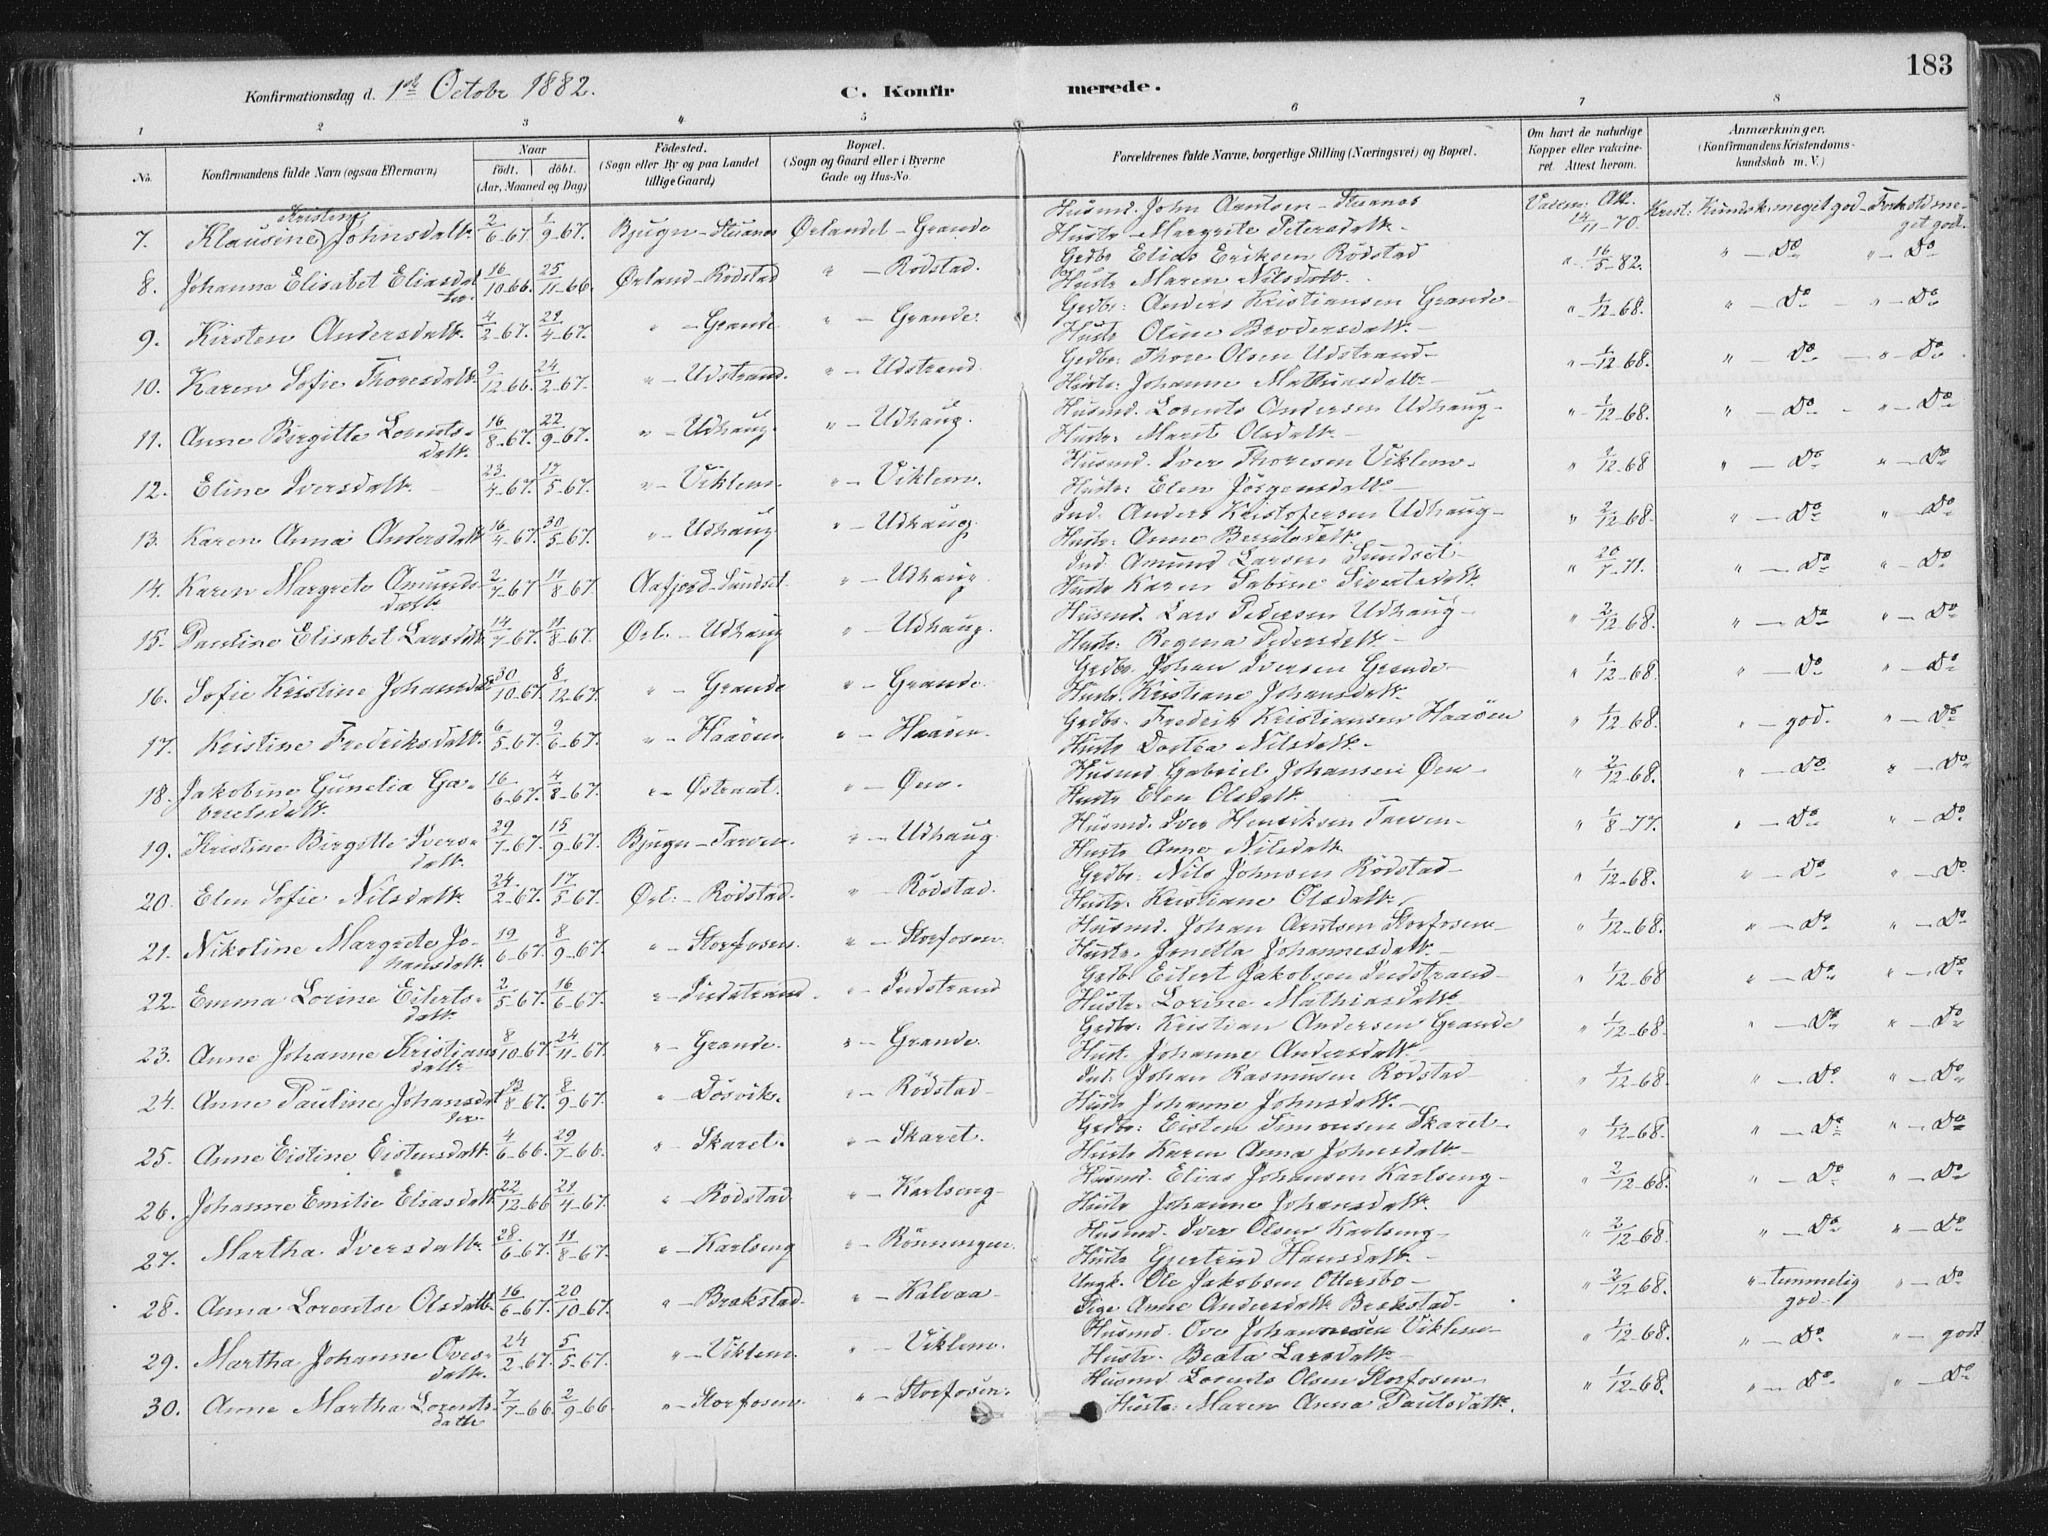 183
Konfirmationsdag d. 1ste Octobr 1882. C. Konfirmerede.
1 2 3 4 5 6 7 8
No. Konfirmandens fulde Navn (ogsaa Efternavn) Naar födt. döbt. (Aar, Maaned og Dag) Födested. (Sogn eller By og paa Landet tillige Gaard) Bopæl. (Sogn og Gaard eller i Byerne Gade og Hus-No. Forældrenes fulde Navne, borgerlige Stilling (Næringsvei) og Bopæl. Om havt de naturlige Kopper eller vakcineret. Attest herom. Anmærkninger. (Konfirmandens Kristendomskundskab m. V.)
7. Klausine Kristine Johnsdatt. 2/6-67. 1/9-67. Bjugn - Ørlandet - Grande Husmd. John Arntsen Hustr - Margrete Petersdatt. - Vaccin: Att. 14/11-70. Krist: Kundsk: meget god - Forhold meget godt.
8. Johanne Elisabet Eliasdatter. 16/10-66. 25/11-66. Ørland - Rödstad " - Rödstad. Grdbr Elias Eriksen Rödstad Hustr Maren Nilsdatt. " - 16/5-82. " - Do " - Do
9. Kirsten Andersdatt. 4/2-67. 21/4-67. " - Grande " - Grande. Grdbr: Anders Kristiansen Grande - Hustr Oline Brodersdatt. - " - 1/12-68. " - Do - " - Do
10. Karen Sofie Thoresdatt. 9/12-66. 24/2-67. " - Udstrand. " - Udstrand. Grdbr: Thore Olsen Udstrand - Hustr: Johanne Mathiasdatt. - " - 1/12-68. " - Do - " - Do
11. Anne Birgitte Lorentsdatt. 16/8-67. 22/9-67. " - Udhaug. " - Udhaug. Husmd. Lorents Andersen Udhaug - Hustr: Marit Olsdatt. - " - 1/12-68. " - Do - " - Do
12. Eline Iversdatt. - 23/4-67. 17/5-67. " - Viklem. " - Viklem. Husmd. Iver Thoresen Viklem - Hustr: Elen Jörgensdatt. - " 1/12-68 " - Do " - Do
13. Karen Anna Andersdatt 16/4-67. 30/5-67. " - Udhaug " - Udhaug. Ind. Anders Kristofersen Udhaug - Hustr: Anne Berntsdatt. " 2/12-68. " - Do " - Do
14. Karen Margrete Amundsdatt. 2/7-67 11/8-67. Aafjord - Sundset. " - Udhaug Ind. Amund Larsen Sundset - Hustr Karen Sabine Sivertsdatt. " 20/7-71. " - Do " - Do
15. Pauline Elisabet Larsdatt. 14/7-67. 11/8-67. Ørl. - Udhaug " - Udhaug. Husmd. Lars Pedersen Udhaug - Hustr: Regina Pedersdatt. - " 2/12-68. " - Do " - Do
16. Sofie Kristine Johansdatt 30/10-67. 8/12-67. " - Grande " - Grande. Grdbr. Johan Iversen Grande - Hustr. Kristiane Johansdatt. " 1/12-68. " - Do " - Do
17. Kristine Fredriksdatt. 6/5-67. 9/6-67. " - Haaöen. " - Haaöen. Grdbr. Fredrik Kristiansen Haaöen Hustr Dortea Nilsdatt. - " 1/12-68. " - god. " - Do
18. Jakobine Gunelia Gabrielsdatt. 16/6-67. 4/8-67. " - Østraat. " - Øen. Husmd Gabriel Johansen Øen - Hustr Elen Olsdatt. " 2/12-68. " - Do " - Do
19. Kristine Birgitte Iversdatt. 29/7-67. 15/9-67. Bjugn - Tarven. " - Udhaug Husmd. Iver Henriksen Tarven - Hustr Anne Nilsdatt. " 1/8-77. " - Do " - Do
20. Elen Sofie Nilsdatt. 24/2-67. 17/5-67. Ørl. - Rödstad. " - Rödstad. Grdbr: Nils Johnsen Rödstad - Hustr: Kristiane Olsdatt. " 1/12-68. " - Do " - Do
21. Nikoline Margrete Johansdatt. 19/6-67. 8/9-67. " - Storfosen. " - Storfosen. Husmd. Johan Arntsen Storfosen - Hustr. Jonetta Johannesdatt. - " 1/12-68 " - Do " - Do
22. Emma Lorine Eilertsdatt. 2/5-67. 16/6-67. " - Indstrand. " - Indstrand Grdbr Eilert Jakobsen Indstrand - Hustr. Lorine Mathiasdatt. " 1/12-68 " - Do " - Do
23. Anne Johanne Kristiansdatt. 8/10-67. 24/11-67. " - Grande. " - Grande. Grdbr: Kristian Andersen Grande Hust. Johanne Andersdatt. " 1/12-68. " - Do " - Do
24. Anne Pauline Johansdatter. 8-67. 8/9-67. " - Dösvik. " - Rödstad - Ind. Johan Rasmusen Rödstad - Hustr Johanne Johnsdatt. - " 1/12-68. " - Do " - Do
25. Anne Eistine Eistensdatt. 4/6-66. 29/7-66. " - Skaret. " - Skaret. Grdbr: Eisten Simonsen Skaret - Hustr Karen Anna Johnsdatt. " 1/12-68. " - Do " - Do
26. Johanne Emilie Eliasdatt 22/12-66 21/4-67. " - Rödstad " - Karlseng - Husmd. Elias Johansen Karlseng - Hustr Johanne Johansdatt. " 2/12-68. " - Do " - Do
27. Martha Iversdatt. 28/6-67. 11/8-67. " - Karlseng " - Rönningen. Husmd. Iver Olsen Karlseng - Hustr Gjertrud Hansdatt. - " 2/12-68. " - Do " - Do
28. Anna Lorentse Olsdatt. 16/6-67. 20/10-67. " - Brækstad. " - Kalvaa - Ungk. Ole Jakobsen Ottersbo - Pige Anne Andersdatt. Brækstad. " 2/12-68. " - temmelig god. " - Do
29. Martha Johanne Ovesdatt. 24/2-67. 5/5-67. " - Viklem. " - Viklem. Husmd. Ove Johannesen Viklem - Hustr. Beata Larsdatt. - " 1/12-68. " - Do " - godt
30. Anne Martha Lorentsdatt. 7/7-66. 2/9-66. " - Storfosen. " - Storfosen. Husmd Lorents Olsen Storfosen - Hustr: Maren Anna Paulsdatt. " 1/12-68. " - Do " - Do